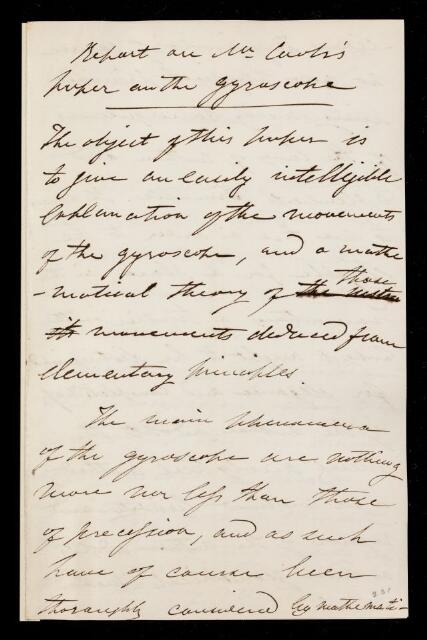 Report on Mr Cook's
paper on the gyroscope
The object of this paper is
to give an easily intelligible
Explanation of the movements
of the gyroscope, and a mathe
-matical theory of the those
its movements deduced from
elementary principles.
The main phenomena
of the gyroscope are nothing
more nor less than those
of precession, and as such
have of course been
thoroughly considered by mathemati-